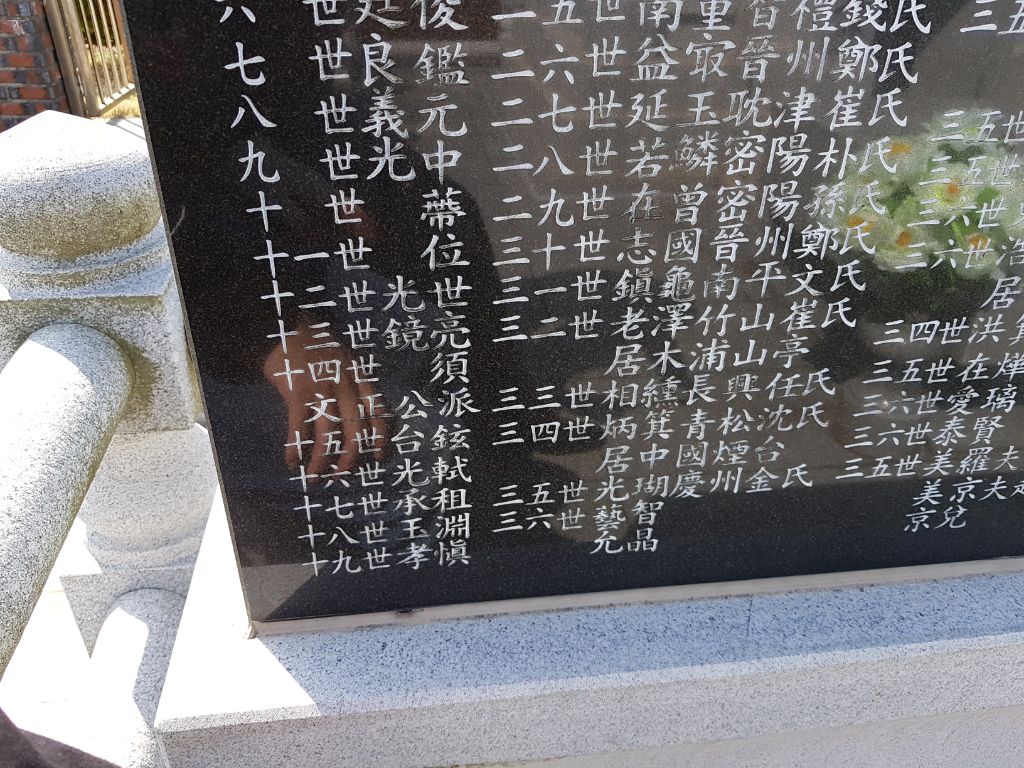 六世廷俊
七世良鑑
八世義元
九世光中
十世
十一世位
十二世光世
十三世鏡亮
十四世須
文正公派
十五世台鉉
十六世光軾
十七世承租
十八世玉淵
十九世孝愼
二五世南重 禮錢氏
二六世益㝡晉州鄭氏
二七世延玉耽津崔氏
二八世若鱗密陽朴氏
二九世在曾密陽孫氏
三十世志國晉州鄭氏
三一世鎭龜南平文氏
三二世老澤竹山崔氏
居木浦山亭
三三世相纁長興任氏
三四世炳箕青松沈氏
居中國煙台
三五世光瑚慶州金氏
三六世藝智
允晶
三五
三五世
三五世
三六世
三六世浩
居
三四世洪箕
三五世在燁
三六世愛璃
三六世泰賢
三五世美羅夫
美京夫
京兒